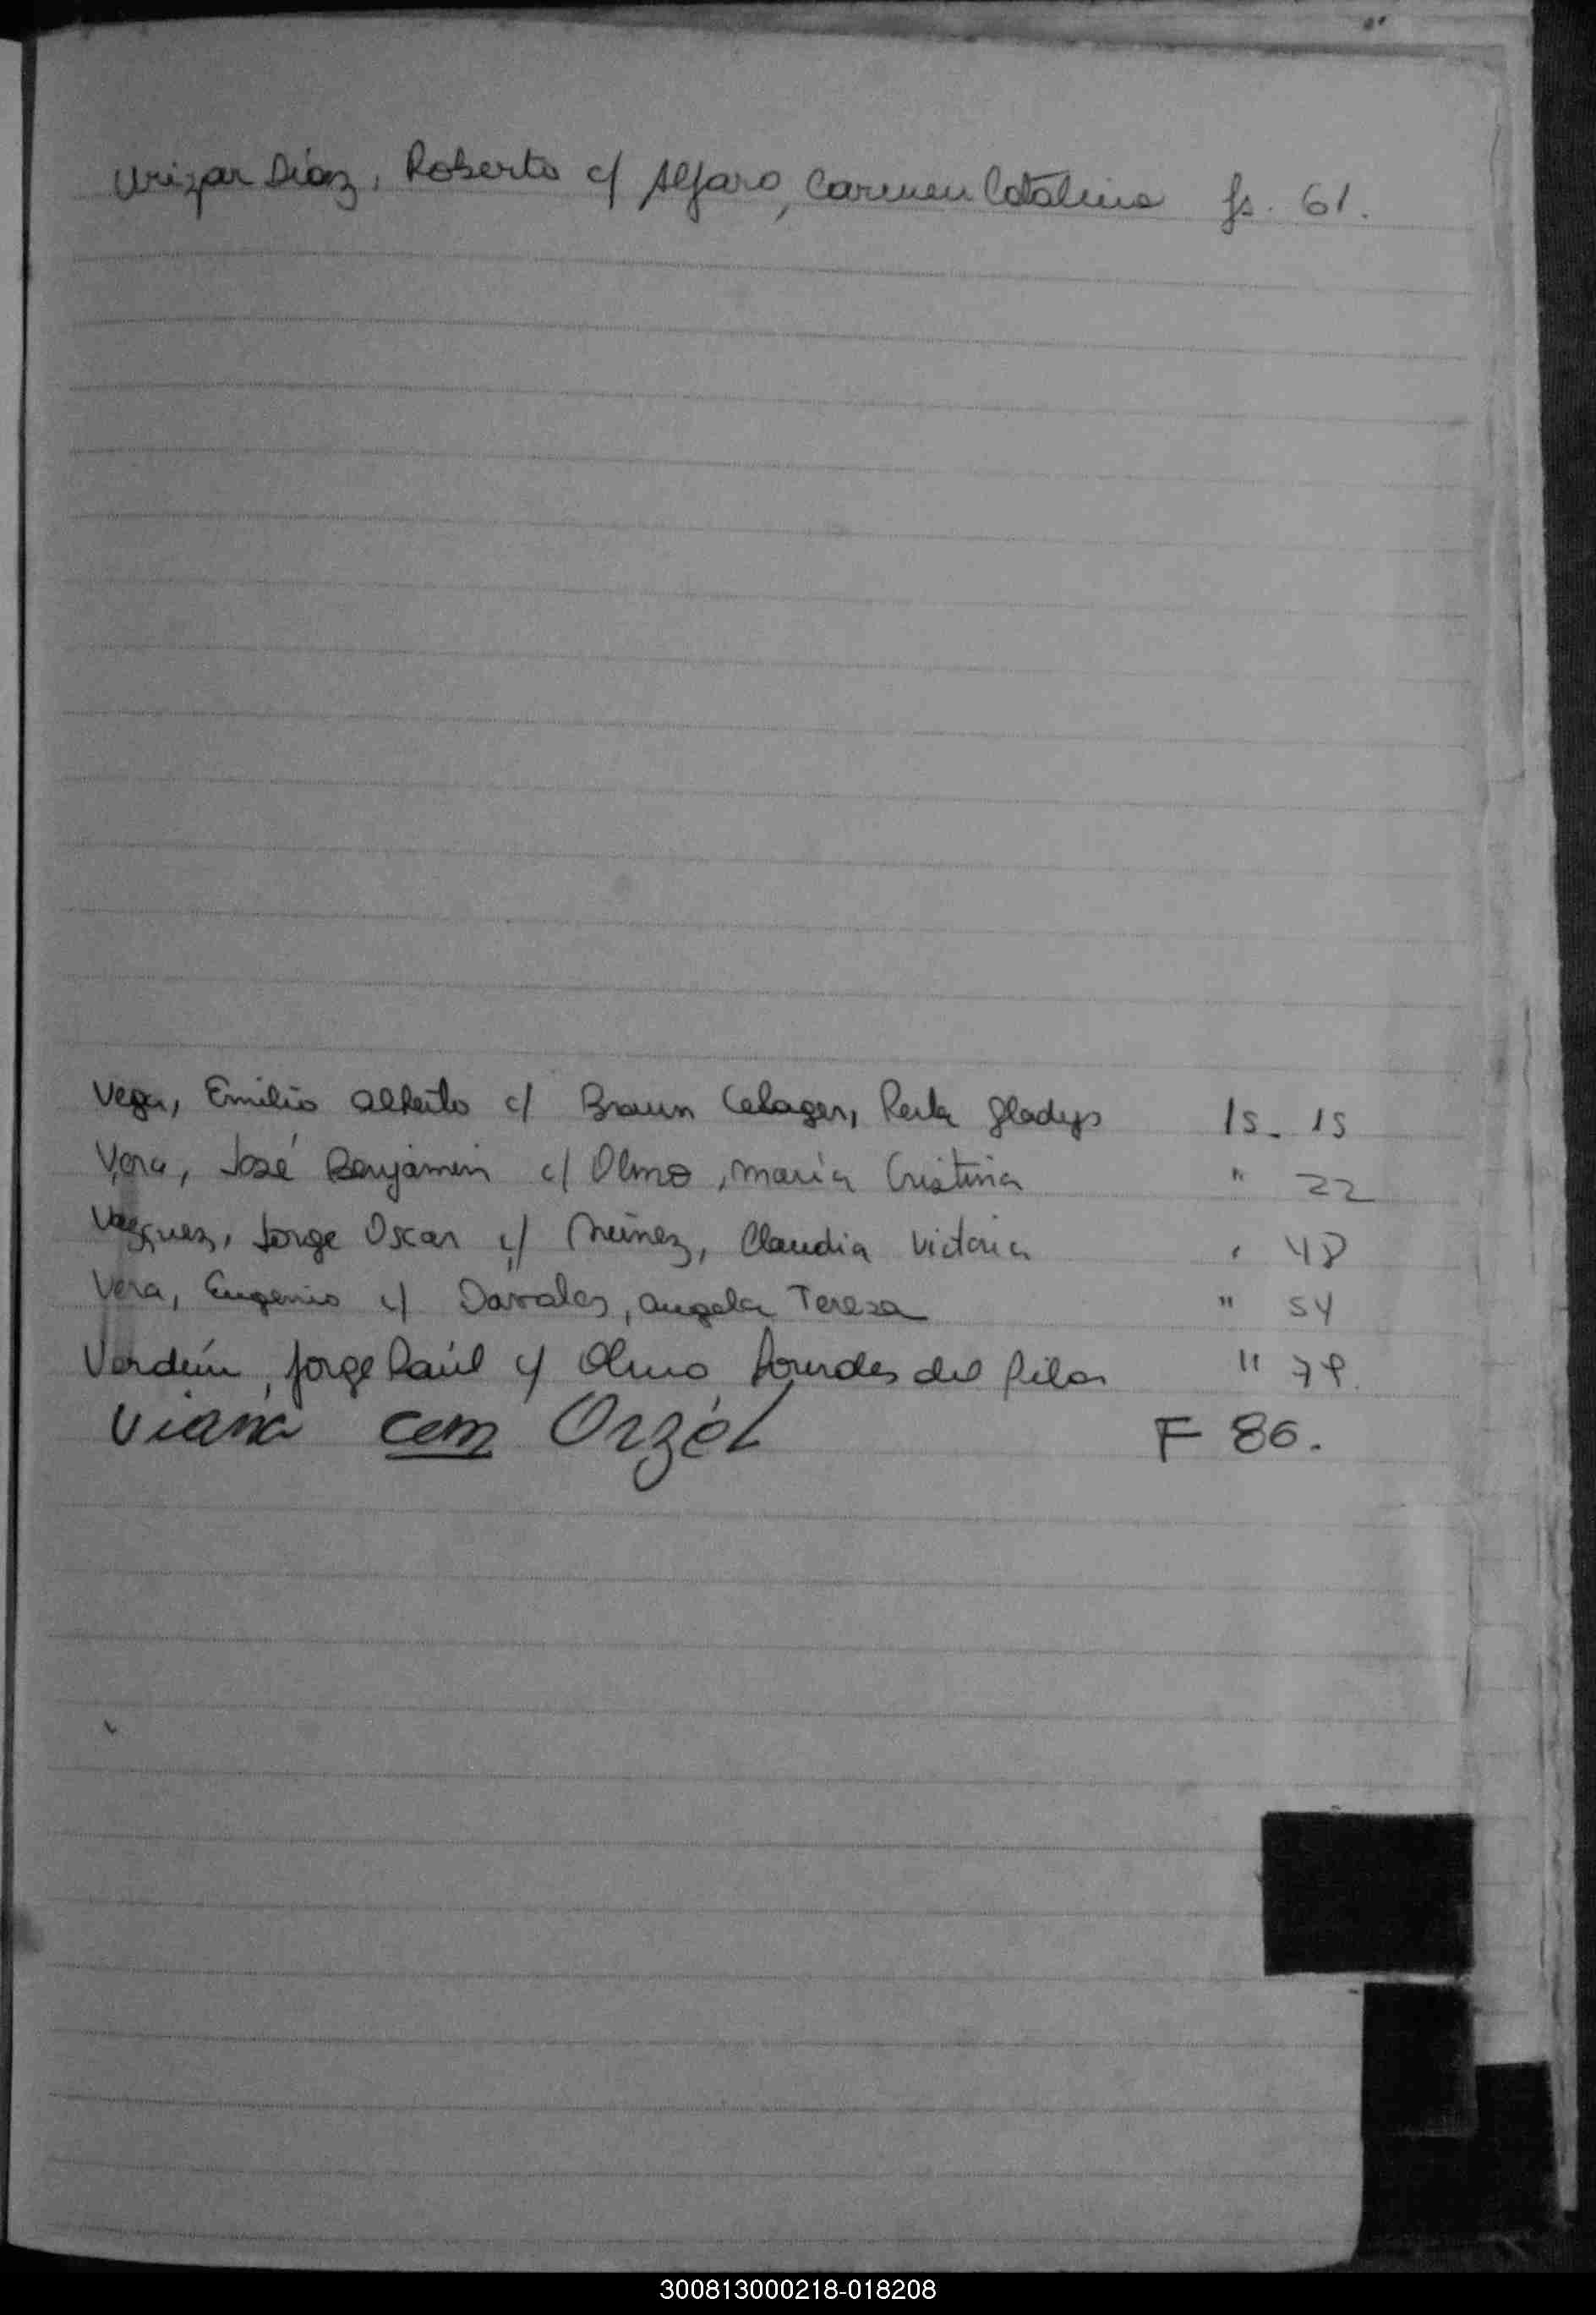 Urizar Díaz, Roberto c/ Alfaro, Carmen Catalina fs. 61.
Vega, Emilio Alberto c/ Braun Gladys fs. 15
Vera, José Benjamin c/ Olmo, María Cristina " 22
Vazquez, Jorge Oscar c/ Núnez, Claudia Victoria " 48
Vera, Eugenio c/ Angela Teresa " 54
Verdún, Jorge Raúl c/ Olmo, Lourdes del Pilar "
Viana con Orzól F 86.
300813000218-018208